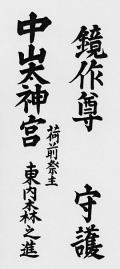 鏡作尊 守護
中山太神宮
荷前祭主
東内森之進